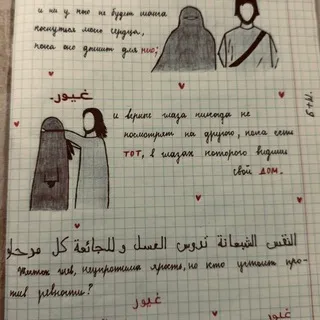 и ни у кого не будет шанса
коснуться моего сердца,
пока оно дышит для нею;
غيور
и верные глаза никогда не
посмотрят на другого, пока есть
тот, в глазах которого видишь
свой дом.
النفس الشبعانة تدوس العسل و للجائعة كل مر حلو
Жесток гнев, неукротима ярость, но кто устоит про-
тив ревности?
غيور
غيور